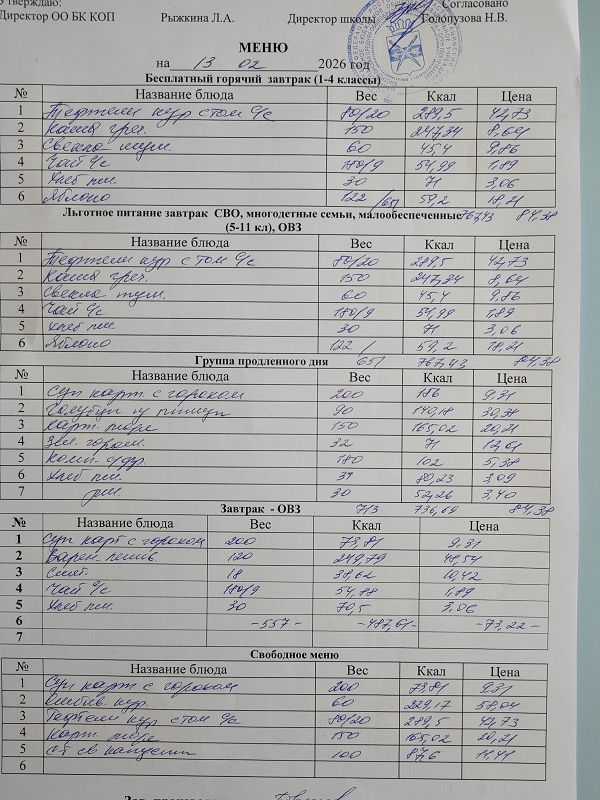 Утверждаю: Согласовано
Директор ОО БК КОП Рыжкина Л.А. Директор школы Голопузова Н.В.
МЕНЮ
на 13 02 2026 год
Бесплатный горячий завтрак (1-4 классы)
№ Название блюда Вес Ккал Цена
1 Тефтели кур с том с/с 80/20 289,5 42,73
2 Каша греч. 150 247,34 8,64
3 Свекла туш. 60 45,4 9,86
4 Чай с/с 180/9 54,99 1,89
5 Хлеб пш. 30 71 3,06
6 Яблоко 122 /651 59,2 18,21
Льготное питание завтрак СВО, многодетные семьи, малообеспеченные 767,43 84,38
(5-11 кл), ОВЗ
№ Название блюда Вес Ккал Цена
1 Тефтели кур с том с/с 80/20 289,5 42,73
2 Каша греч. 150 247,34 8,64
3 Свекла туш. 60 45,4 9,86
4 Чай с/с 180/9 54,99 1,89
5 Хлеб пш. 30 71 3,06
6 Яблоко 122 / 59,2 18,21
Группа продленного дня 651 767,43 84,38
№ Название блюда Вес Ккал Цена
1 Суп карт с горохом 200 186 9,31
2 Голубцы 90 140,18 30,38
3 Карт. пюре 150 165,02 20,21
4 Зел. горош. 32 71 12,61
5 Комп. 180 102 5,38
6 Хлеб пш. 31 80,23 3,09
7 рж. 30 52,26 3,40
Завтрак - ОВЗ 713 736,69 84,38
№ Название блюда Вес Ккал Цена
1 Суп карт с горохом 200 73,81 9,31
2 Варен. 120 249,79 48,54
3 Смет. 18 38,62 10,42
4 Чай с/с 180/9 54,88 1,89
5 Хлеб пш. 30 70,5 3,06
6 -557- -487,61- -73,22-
7
Свободное меню
№ Название блюда Вес Ккал Цена
1 Суп карт с горохом 200 73,81 9,31
2 кур. 60 229,17 58,04
3 Тефтели кур с том с/с 80/20 289,5 42,73
4 Карт. пюре 150 165,02 20,21
5 с-т св капусты 100 87,6 11,41
6